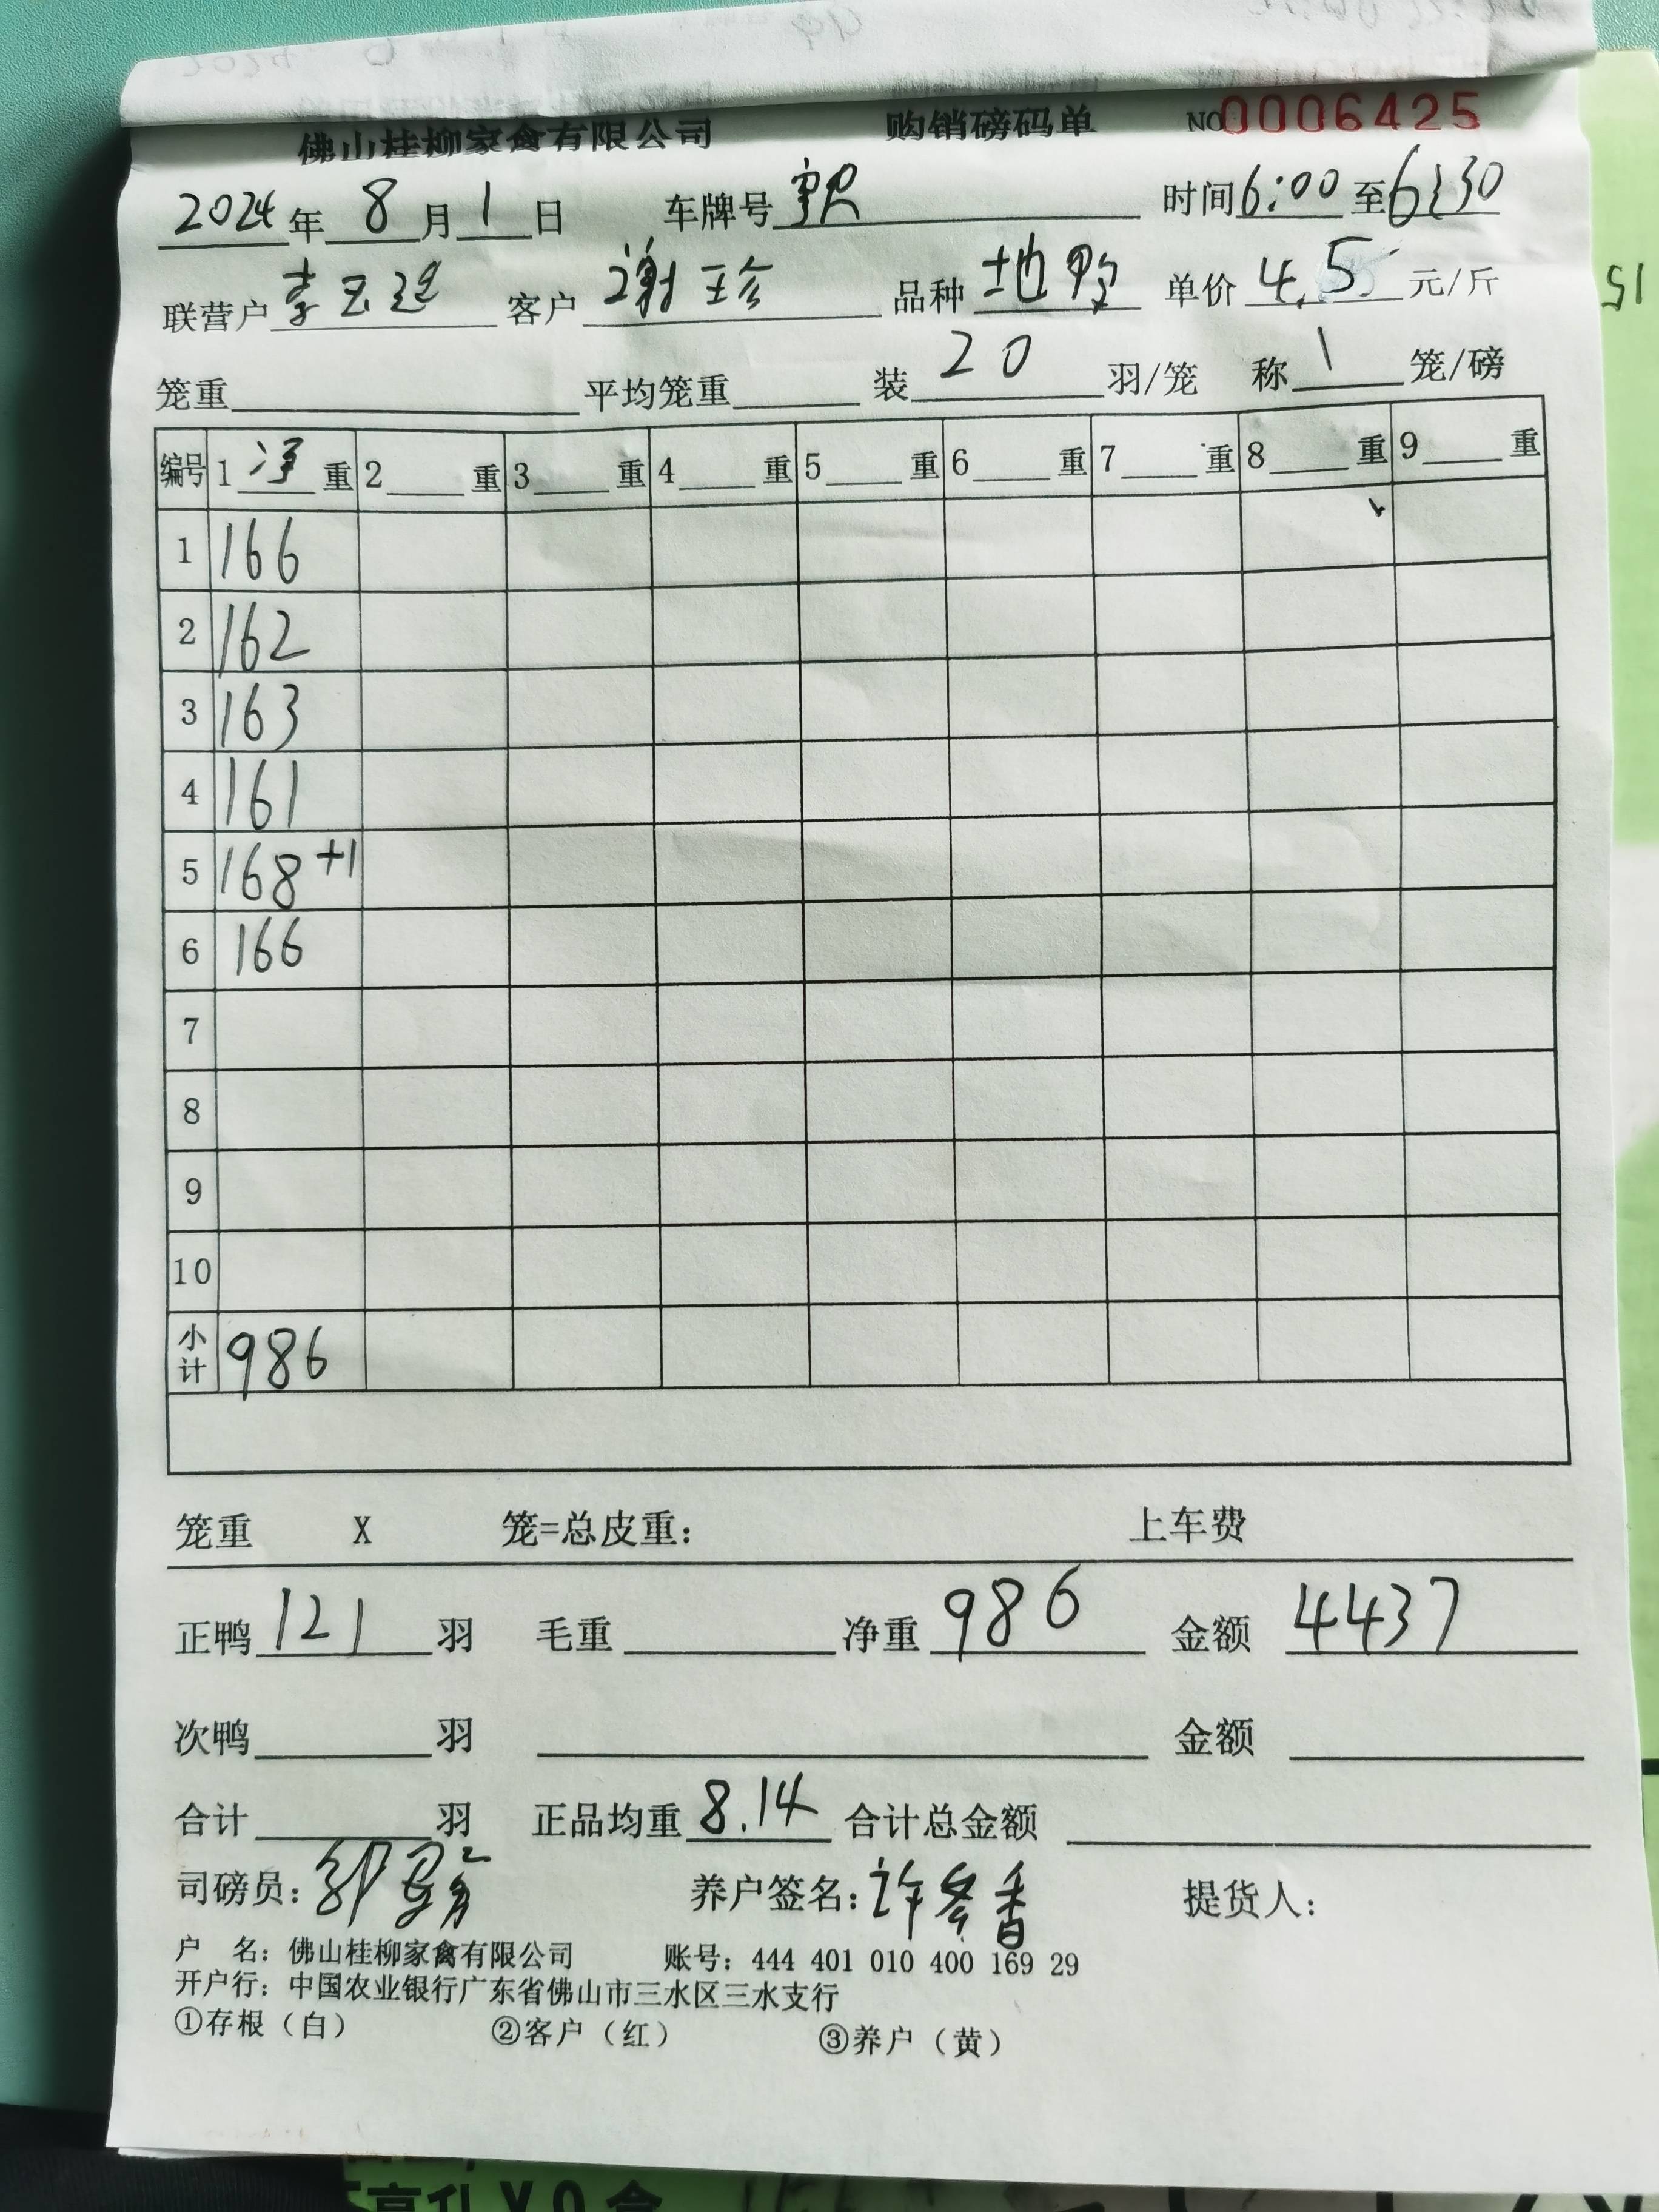 佛山桂柳家禽有限公司 购销磅码单 NO0006425
2024年8月1日 车牌号 时间6:00至6:30
联营户李玉廷 客户谢珍 品种土地鸭 单价4.5元/斤
笼重 平均笼重 装20羽/笼 称1笼/磅
编号 1净重 2重 3重 4重 5重 6重 7重 8重 9重
1 166
2 162
3 163
4 161
5 168+1
6 166
7
8
9
10
小计 986
笼重 X 笼=总皮重: 上车费
正鸭121羽 毛重 净重986 金额4437
次鸭 羽 金额
合计 羽 正品均重8.14 合计总金额
司磅员: 养户签名:许冬香 提货人:
户 名: 佛山桂柳家禽有限公司 账号: 444 401 010 400 169 29
开户行: 中国农业银行广东省佛山市三水区三水支行
①存根（白） ②客户（红） ③养户（黄）